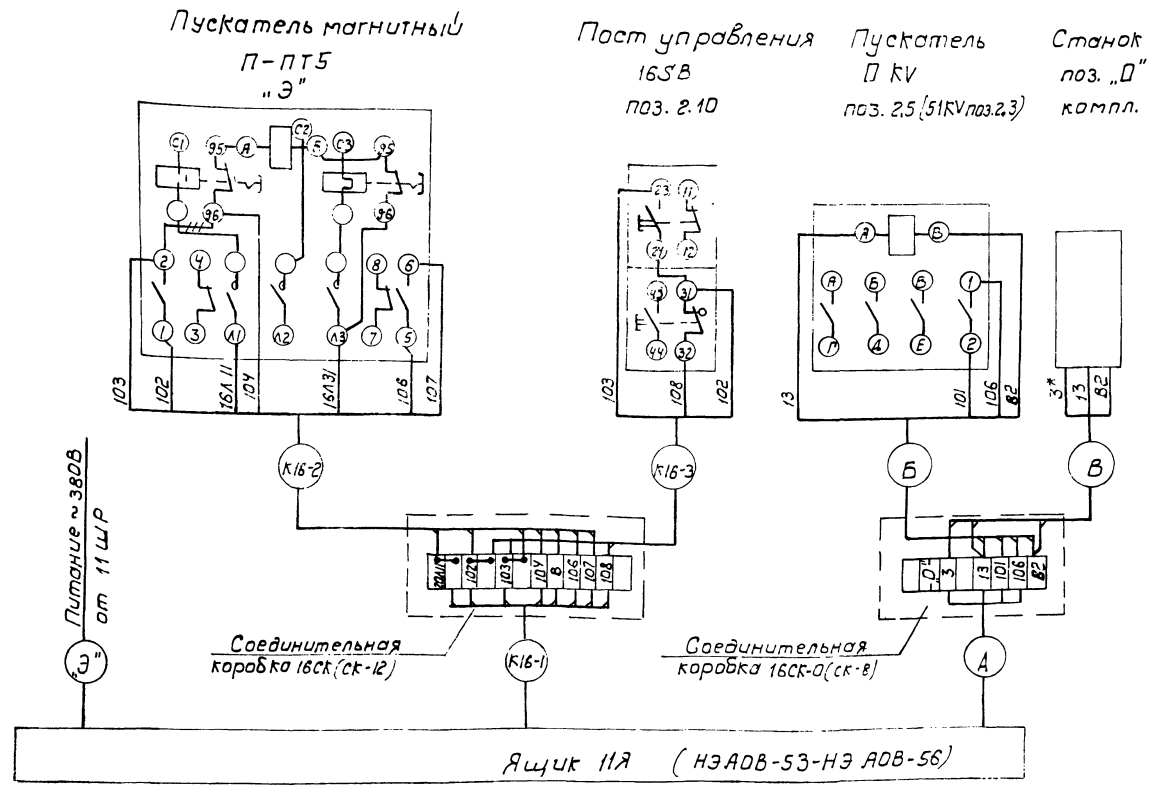 Пускатель магнитный
П-ПТ5
„Э"
Пост управления
16SB
поз. 2.10
Пускатель
П KV
поз. 2.5 (51KV поз. 2.3)
Станок
поз. „О"
компл.
С1
95
А
С2
Б
С3
95
96
96
2
4
8
6
1
3
Л1
Л2
Л3
7
5
103
102
16Л11
104
16Л31
106
107
23
11
24
12
43
31
44
32
103
108
102
А
В
А
Б
В
1
Г
Д
Е
2
13
101
106
В2
3*
13
В2
К16-2
К16-3
Б
В
Питание ~380В
от 11ШР
102
103
104
В
106
107
108
„О"
3
13
101
106
В2
Соединительная
коробка 16СК (СК-12)
Соединительная
коробка 16СК-О (СК-8)
„Э"
К16-1
А
Ящик 11Я (НЭАОВ-53-НЭ АОВ-56)